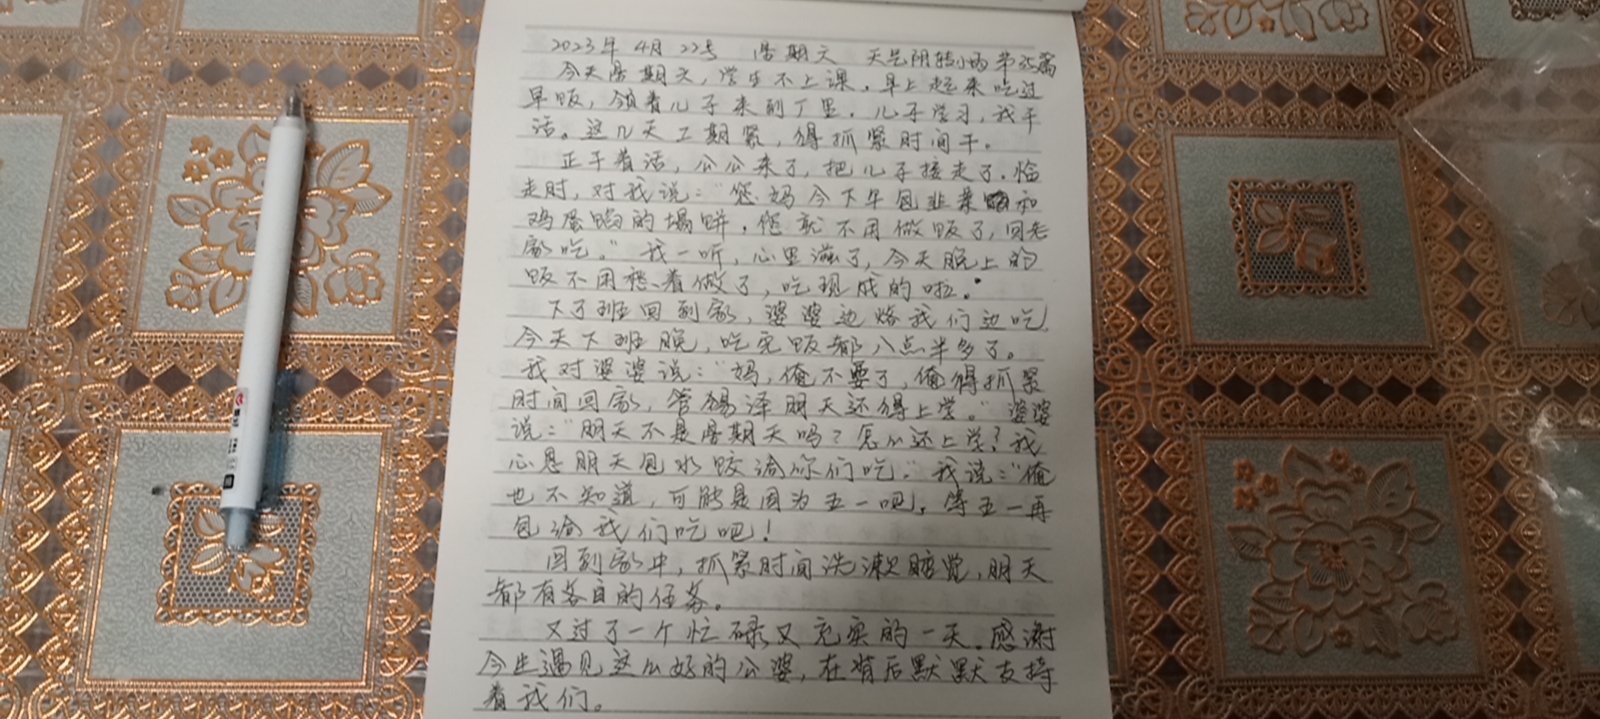 2023年4月22号 星期六 天气阴转小雨 第25篇
今天星期六，学生不上课。早上起来吃过
早饭，领着儿子来到厂里。儿子学习，我干
活。这几天工期紧，得抓紧时间干。
正干着活，公公来了，把儿子接走了。临
走时，对我说："您妈今下午包韭菜和
鸡蛋馅的塌饼，您就不用做饭了，回老
家吃。"我一听，心里滋了，今天晚上的
饭不用愁着做了，吃现成的啦。
下了班回到家，婆婆边烙我们边吃
今天下班晚，吃完饭都八点半多了。
我对婆婆说："妈，俺不要了，俺得抓紧
时间回家，管锡泽明天还得上学。"婆婆
说："明天不是星期天吗？怎么还上学？我
心思明天包水饺给你们吃。"我说："俺
也不知道，可能是因为五一吧，等五一再
包给我们吃吧！
回到家中，抓紧时间洗漱睡觉，明天
都有各自的任务。
又过了一个忙碌又充实的一天。感谢
今生遇见这么好的公婆，在背后默默支持
着我们。